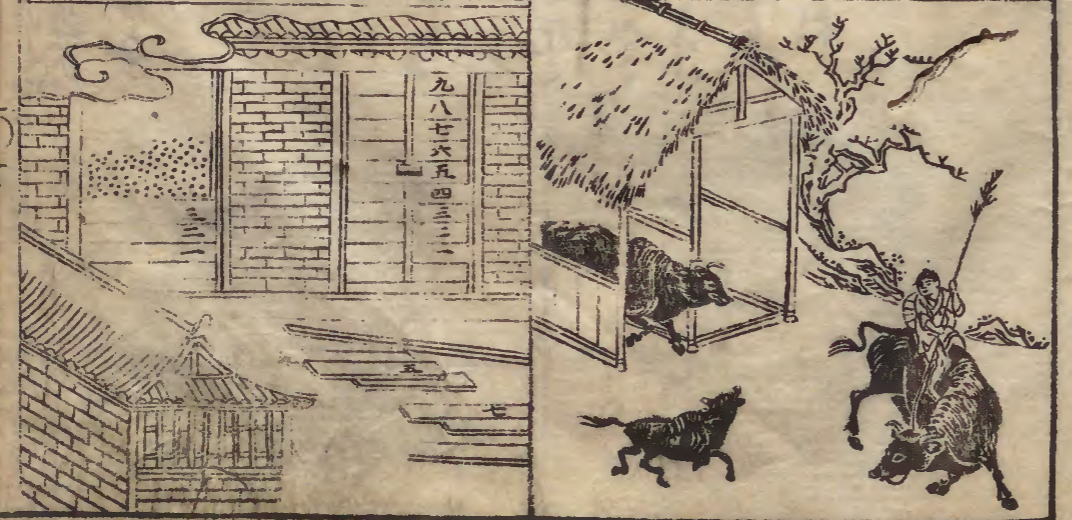 九八七六五四三二一
五
七